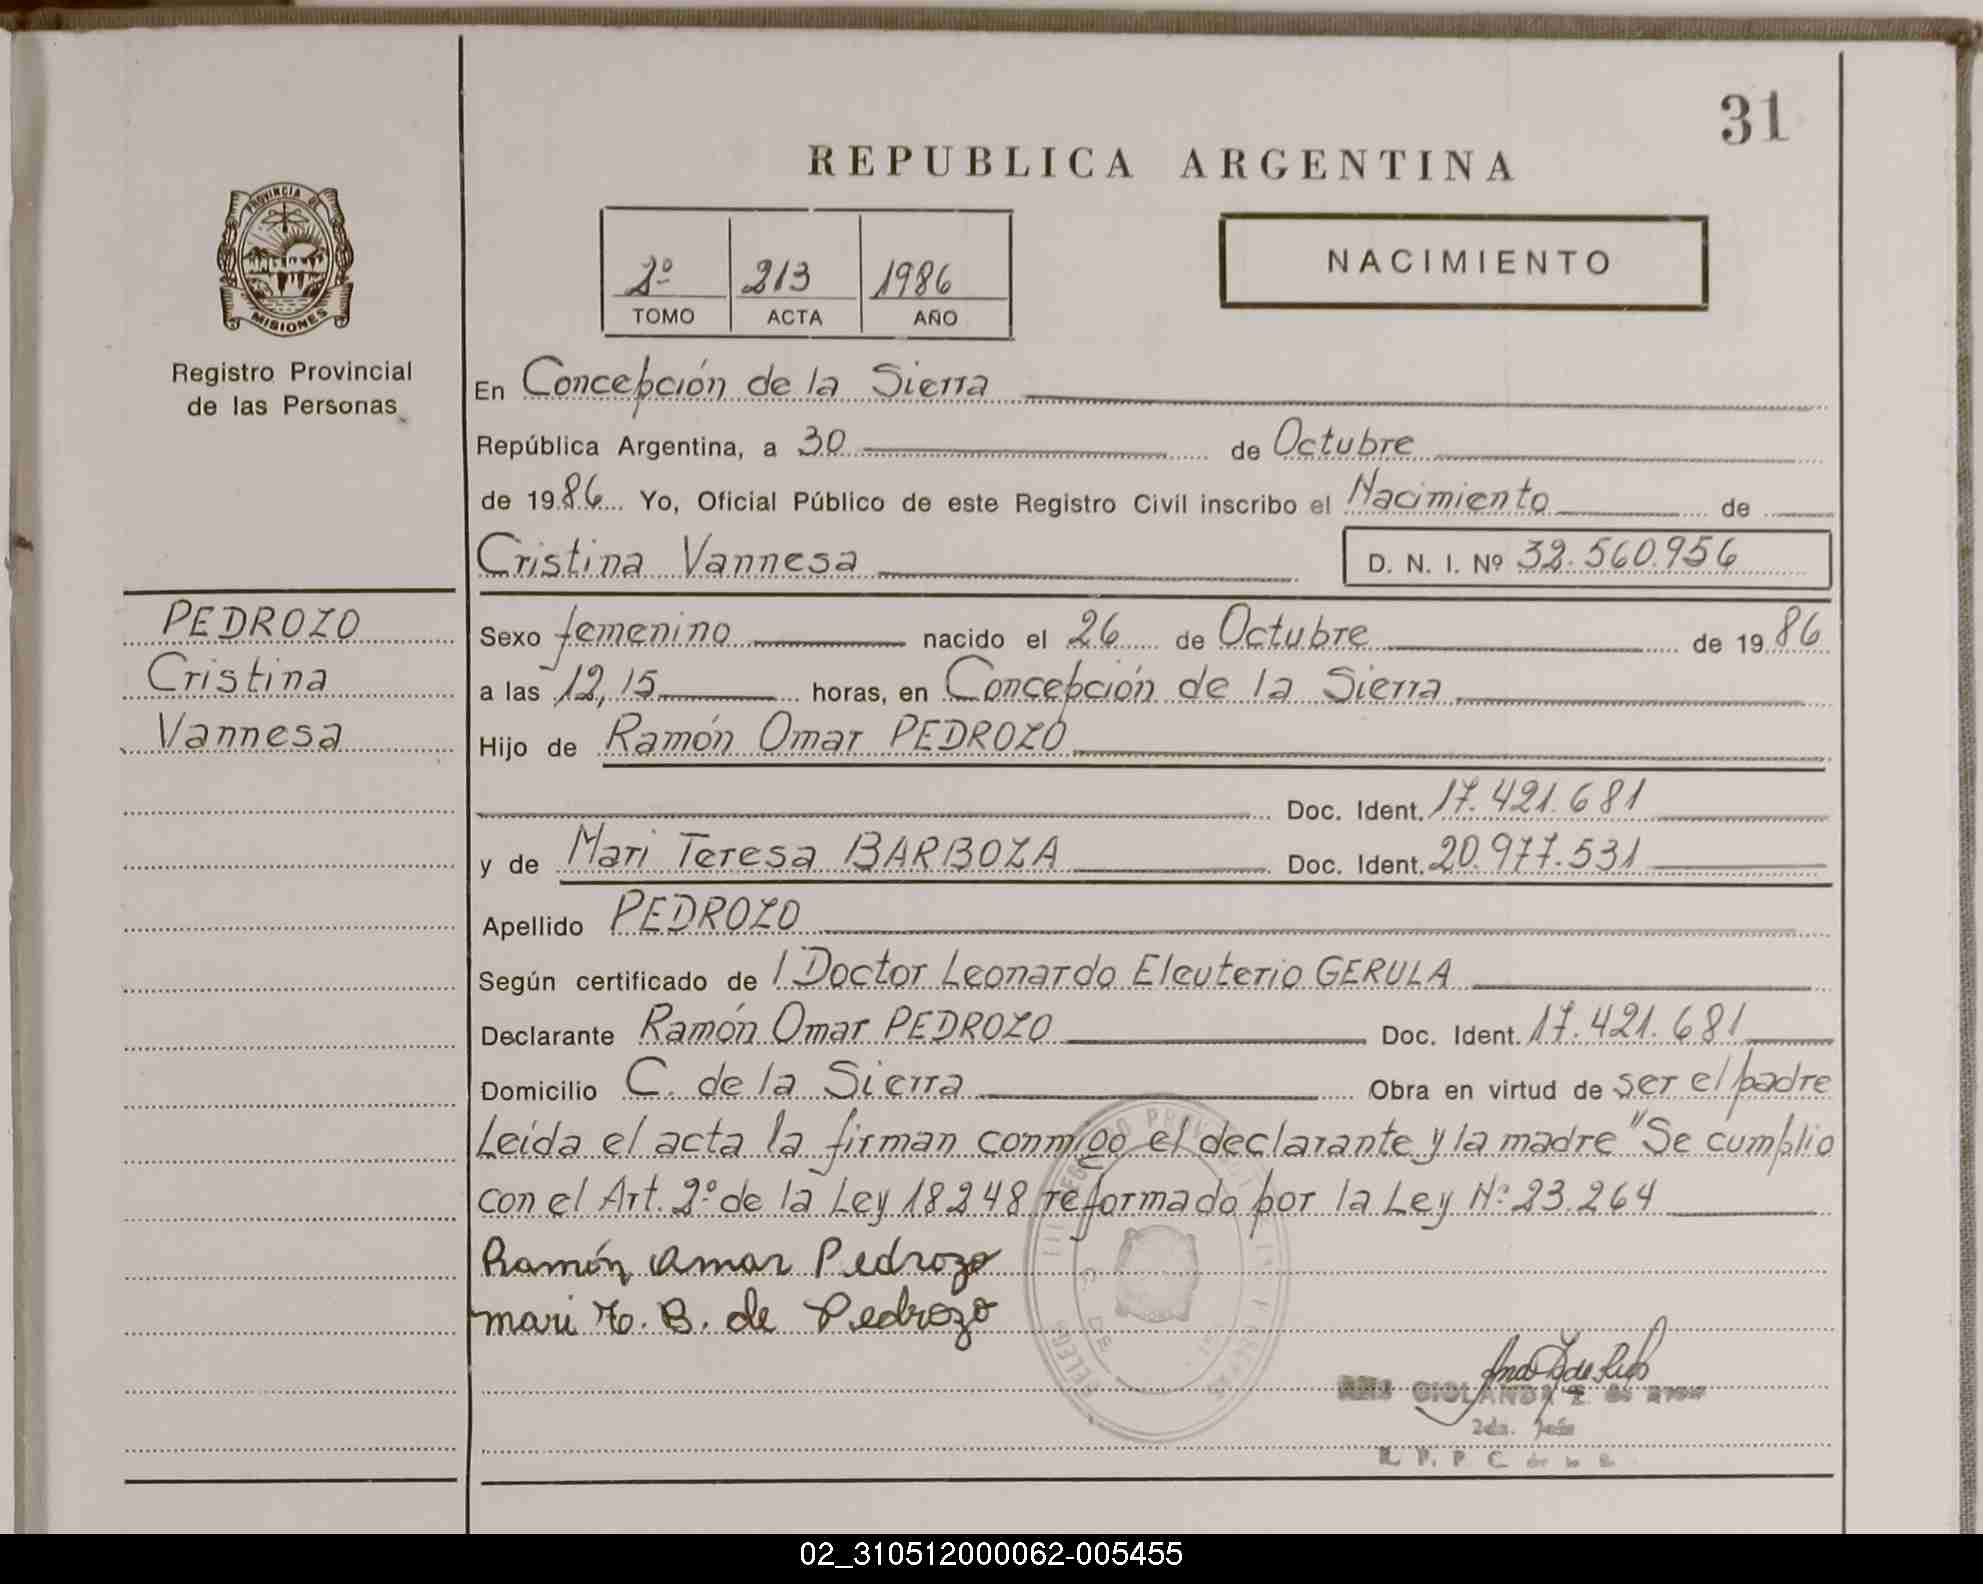 31
REPUBLICA ARGENTINA
PROVINCIA DE
MISIONES
Registro Provincial
de las Personas
2º 213 1986
TOMO ACTA AÑO
NACIMIENTO
En Concepción de la Sierra
República Argentina, a 30 de Octubre
de 1986 Yo, Oficial Público de este Registro Civil inscribo el Nacimiento de
Cristina Vannesa D. N. I. Nº 32.560.956
PEDROZO
Cristina
Vannesa
Sexo femenino nacido el 26 de Octubre de 1986
a las 12,15 horas, en Concepción de la Sierra
Hijo de Ramón Omar PEDROZO
Doc. Ident. 17.421.681
y de Mari Teresa BARBOZA Doc. Ident. 20.977.531
Apellido PEDROZO
Según certificado de l Doctor Leonardo Eleuterio GERULA
Declarante Ramón Omar PEDROZO Doc. Ident. 17.421.681
Domicilio C. de la Sierra Obra en virtud de ser el padre
Leída el acta la firman conmigo el declarante y la madre "Se cumplio
con el Art. 2º de la Ley 18248 reformado por la Ley Nº 23.264
Ramón Omar Pedrozo
mari T. B. de Pedrozo
2da. Jefe
R. P. P. C. de la S.
02_310512000062-005455